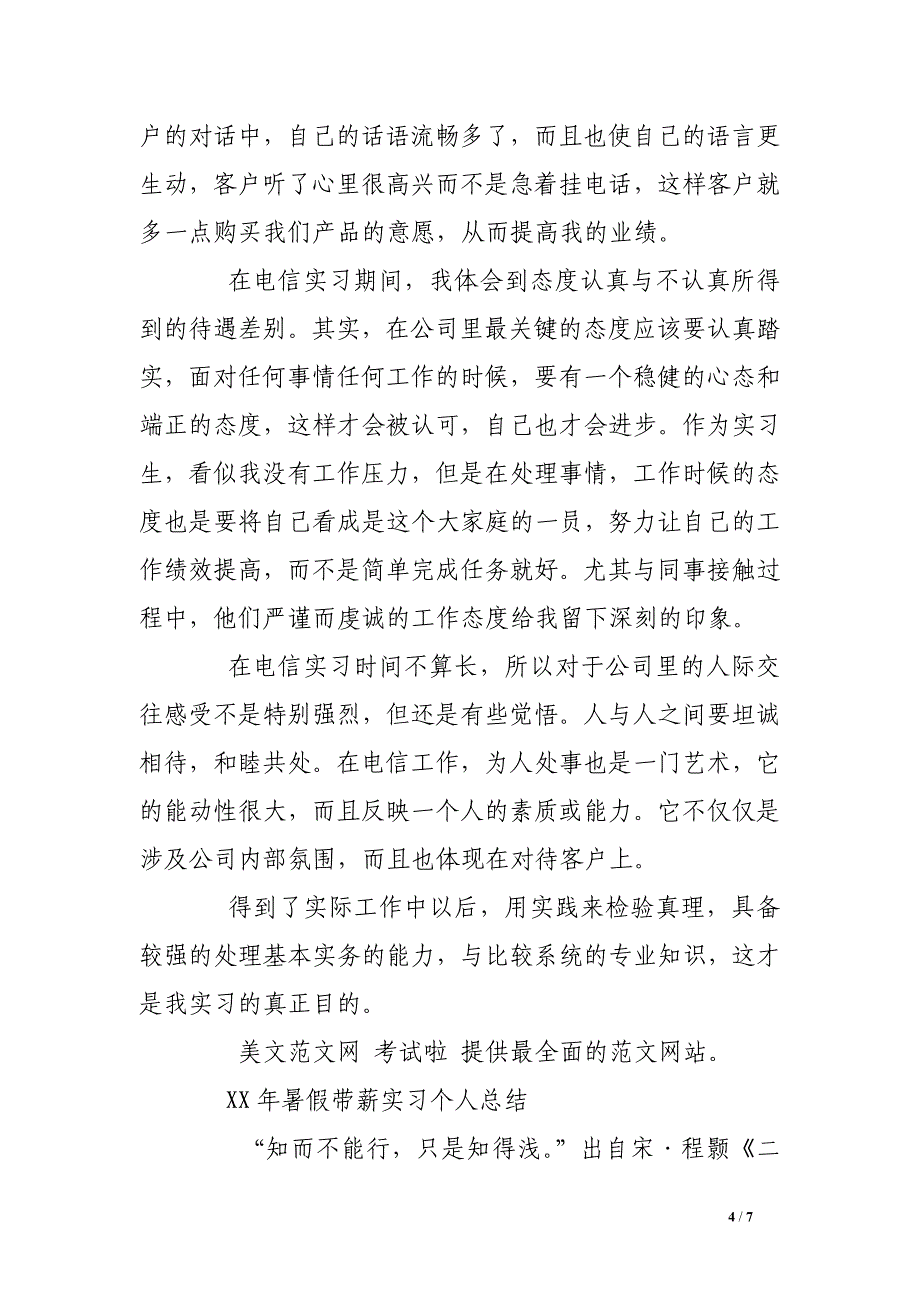 户的对话中，自己的话语流畅多了，而且也使自己的语言更
生动，客户听了心里很高兴而不是急着挂电话，这样客户就
多一点购买我们产品的意愿，从而提高我的业绩。
在电信实习期间，我体会到态度认真与不认真所得
到的待遇差别。其实，在公司里最关键的态度应该要认真踏
实，面对任何事情任何工作的时候，要有一个稳健的心态和
端正的态度，这样才会被认可，自己也才会进步。作为实习
生，看似我没有工作压力，但是在处理事情，工作时候的态
度也是要将自己看成是这个大家庭的一员，努力让自己的工
作绩效提高，而不是简单完成任务就好。尤其与同事接触过
程中，他们严谨而虔诚的工作态度给我留下深刻的印象。
在电信实习时间不算长，所以对于公司里的人际交
往感受不是特别强烈，但还是有些觉悟。人与人之间要坦诚
相待，和睦共处。在电信工作，为人处事也是一门艺术，它
的能动性很大，而且反映一个人的素质或能力。它不仅仅是
涉及公司内部氛围，而且也体现在对待客户上。
得到了实际工作中以后，用实践来检验真理，具备
较强的处理基本实务的能力，与比较系统的专业知识，这才
是我实习的真正目的。
美文范文网 考试啦 提供最全面的范文网站。
XX 年暑假带薪实习个人总结
“知而不能行，只是知得浅。”出自宋·程颢《二
4 / 7